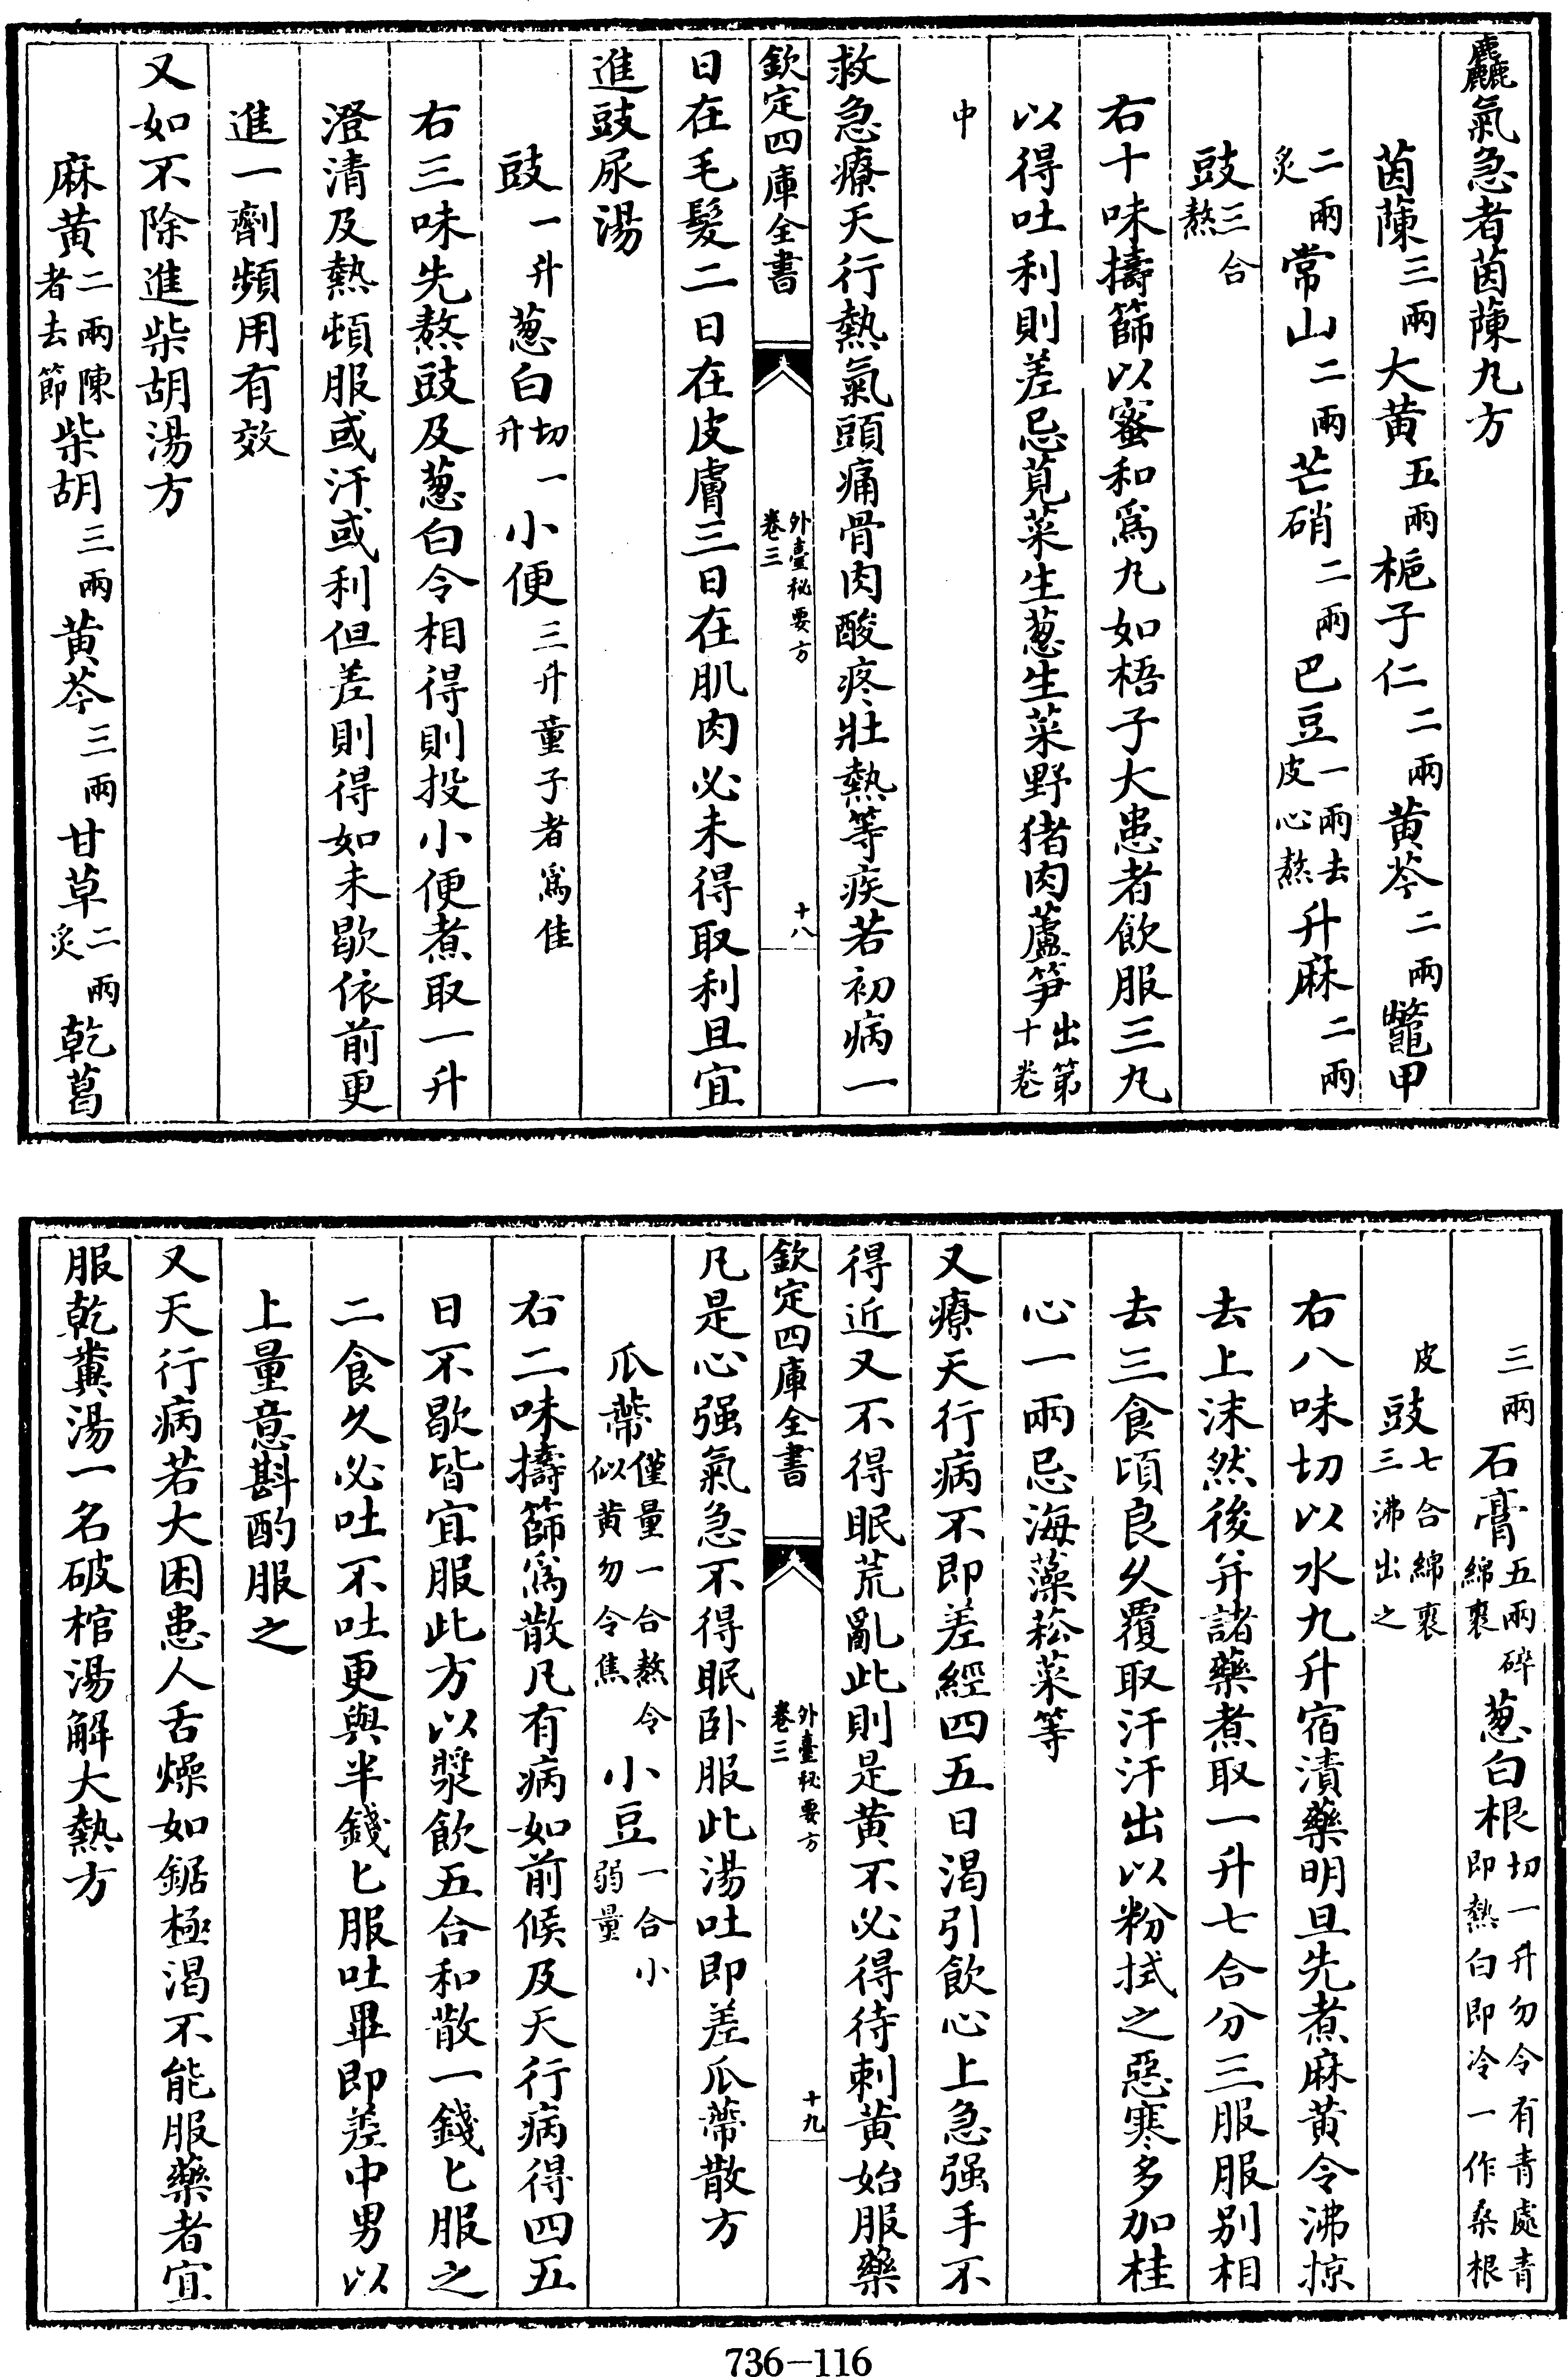 麤氣急者茵蔯丸方
茵蔯三兩大黄五兩梔子仁二兩黄芩二兩鼈甲
二兩炙常山二兩芒硝二兩巴豆一兩去皮心熬升麻二兩
豉三合熬
右十味擣篩以蜜和爲丸如梧子大患者飲服三丸
以得吐利則差忌莧菜生葱生菜野猪肉蘆笋出第十卷
中
救急療天行熱氣頭痛骨肉酸疼壯熱等疾若初病一
欽定四庫全書 外臺秘要方卷三 十八
日在毛髮二日在皮膚三日在肌肉必未得取利且宜
進豉尿湯
豉一升葱白切一升小便三升童子者爲佳
右三味先熬豉及葱白令相得則投小便煮取一升
澄清及熱頓服或汗或利但差則得如未歇依前更
進一劑頻用有效
又如不除進柴胡湯方
麻黄二兩陳者去節柴胡三兩黄芩三兩甘草二兩炙乾葛
三兩石膏五兩碎綿裹葱白根切一升勿令有青處青即熱白即冷一作桑根
皮豉七合綿裹三沸出之
右八味切以水九升宿漬藥明旦先煮麻黄令沸掠
去上沫然後并諸藥煮取一升七合分三服服别相
去三食頃良久覆取汗汗出以粉拭之惡寒多加桂
心一兩忌海藻菘菜等
又療天行病不即差經四五日渴引飲心上急强手不
得近又不得眠荒亂此則是黄不必得待刺黄始服藥
欽定四庫全書 外臺秘要方卷三 十九
凡是心强氣急不得眠卧服此湯吐即差瓜蔕散方
瓜蔕僅量一合熬令似黄勿令焦小豆一合小弱量
右二味擣篩爲散凡有病如前候及天行病得四五
日不歇皆宜服此方以漿飲五合和散一錢匕服之
二食久必吐不吐更與半錢匕服吐畢即差中男以
上量意斟酌服之
又天行病若大困患人舌燥如鋸極渴不能服藥者宜
服乾糞湯一名破棺湯解大熱方
736-116